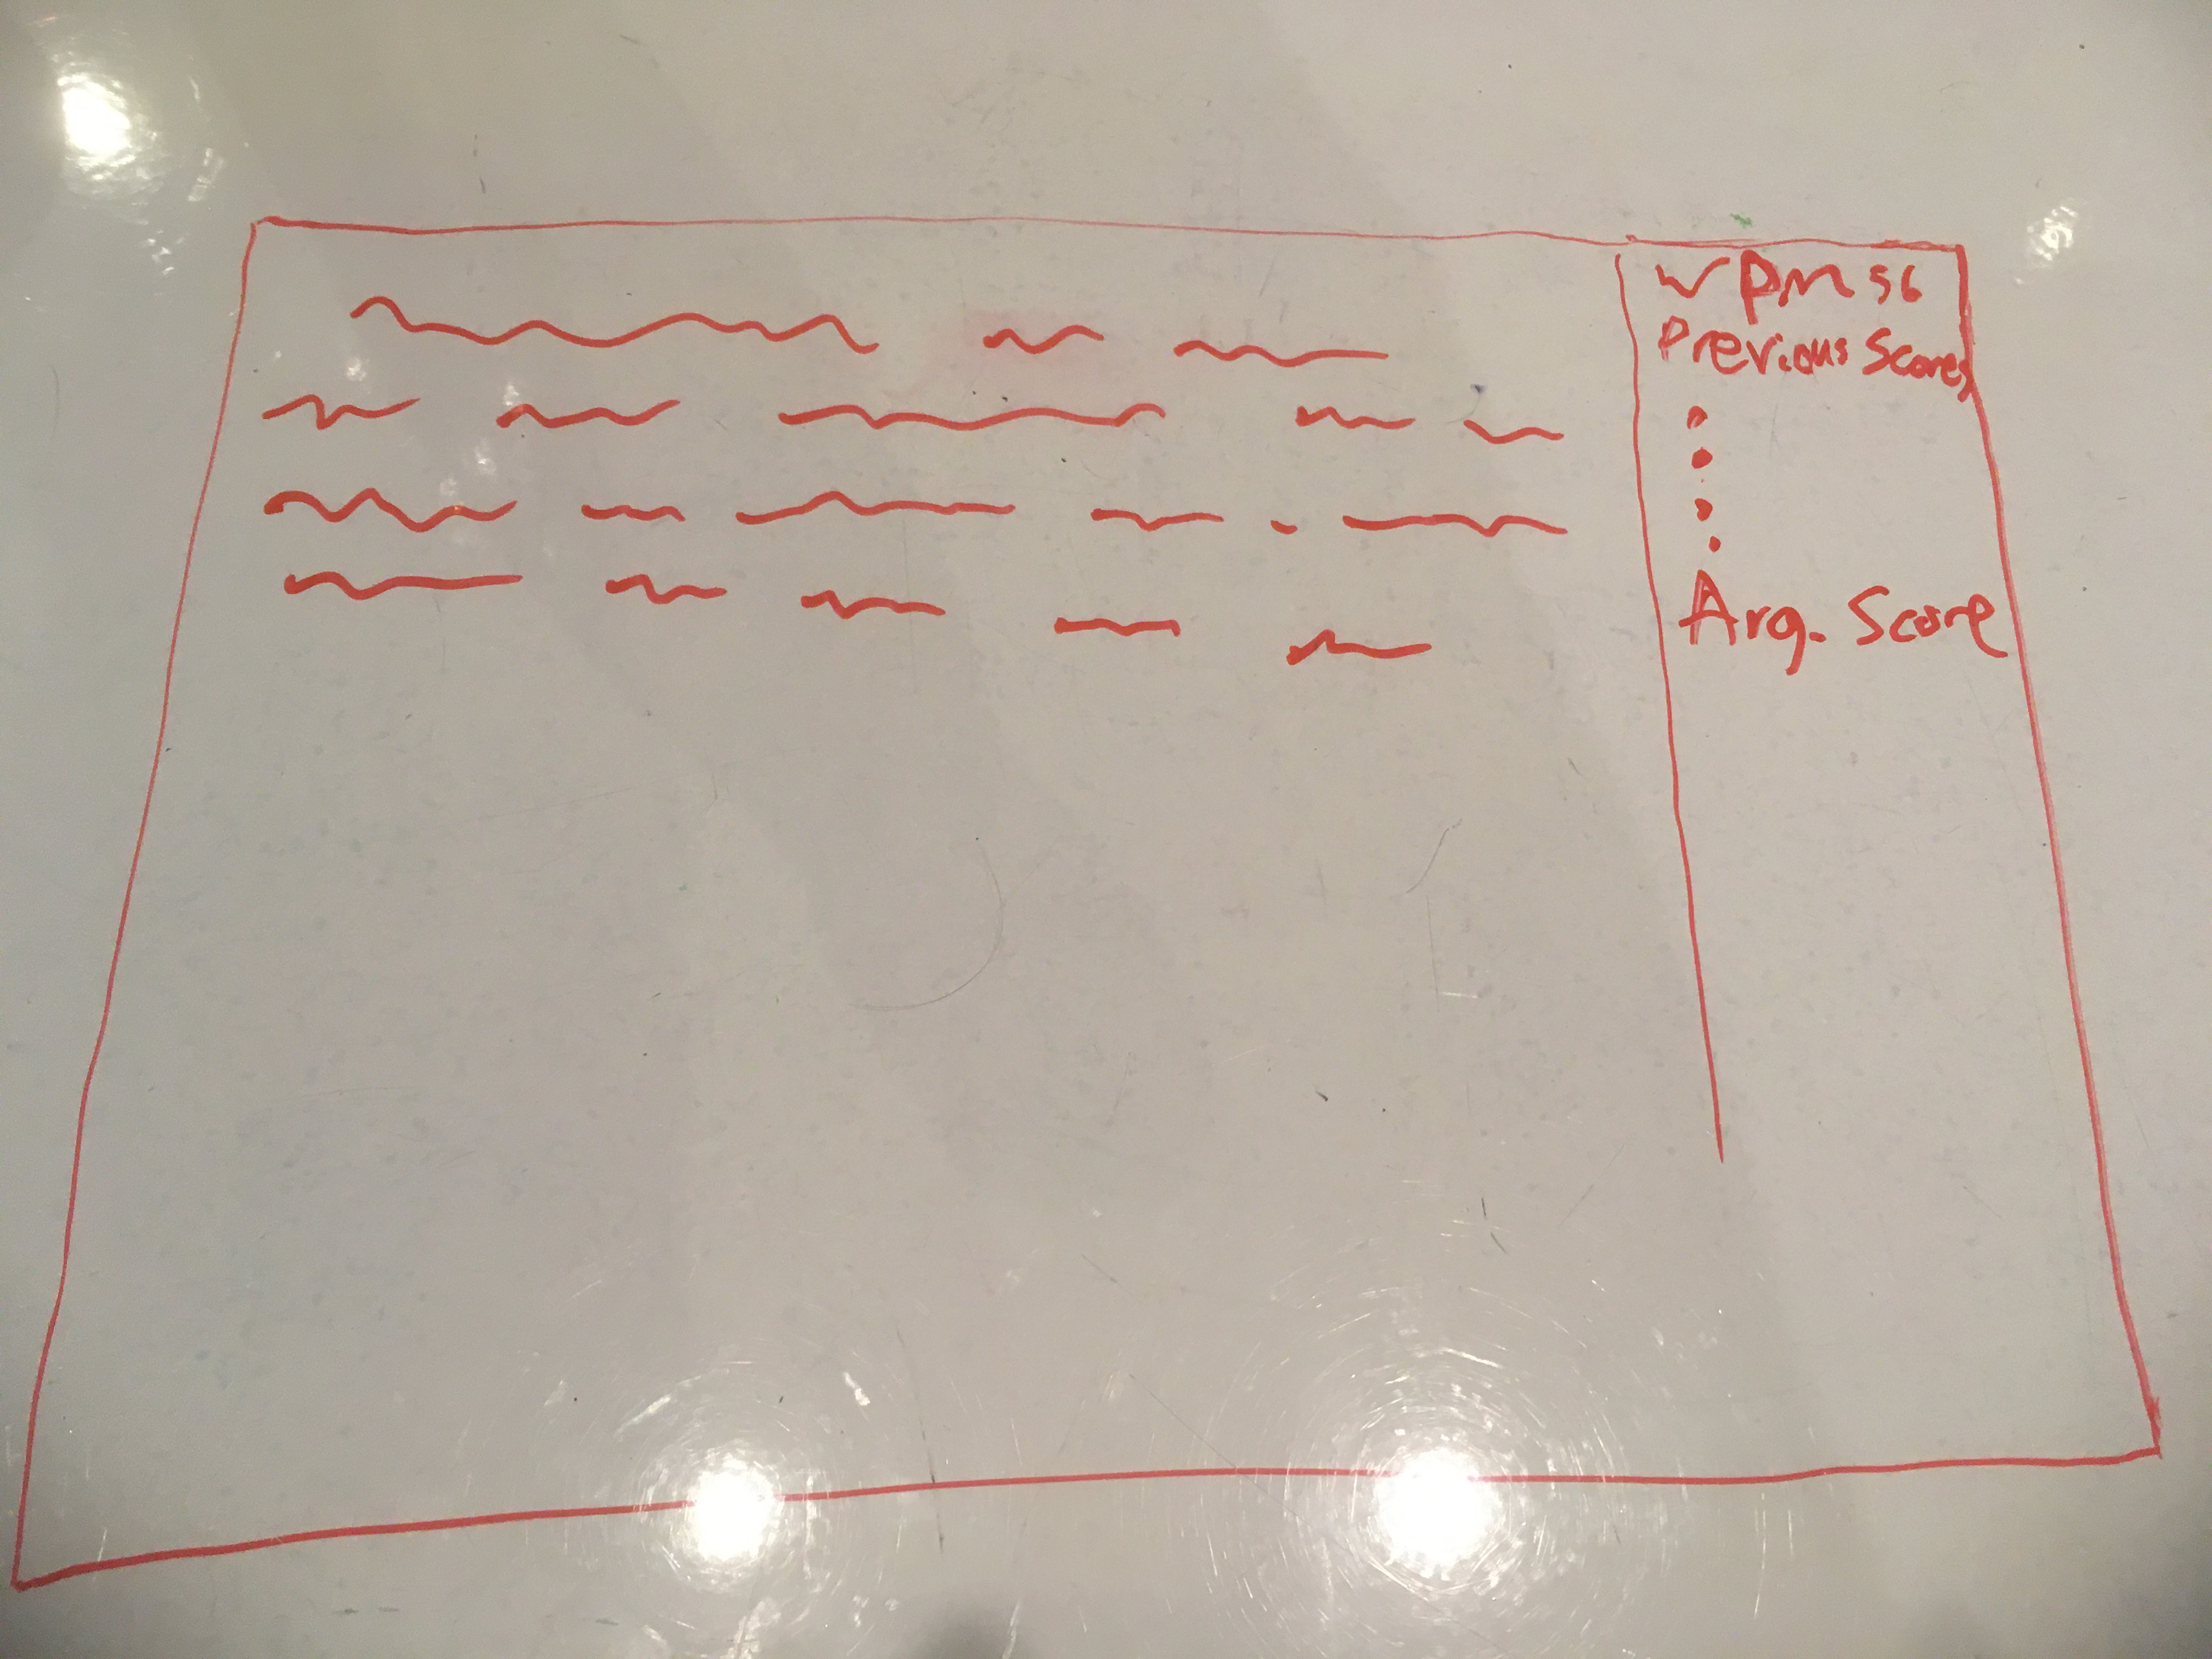 WPM 56
Previous Scores
Avg. Score